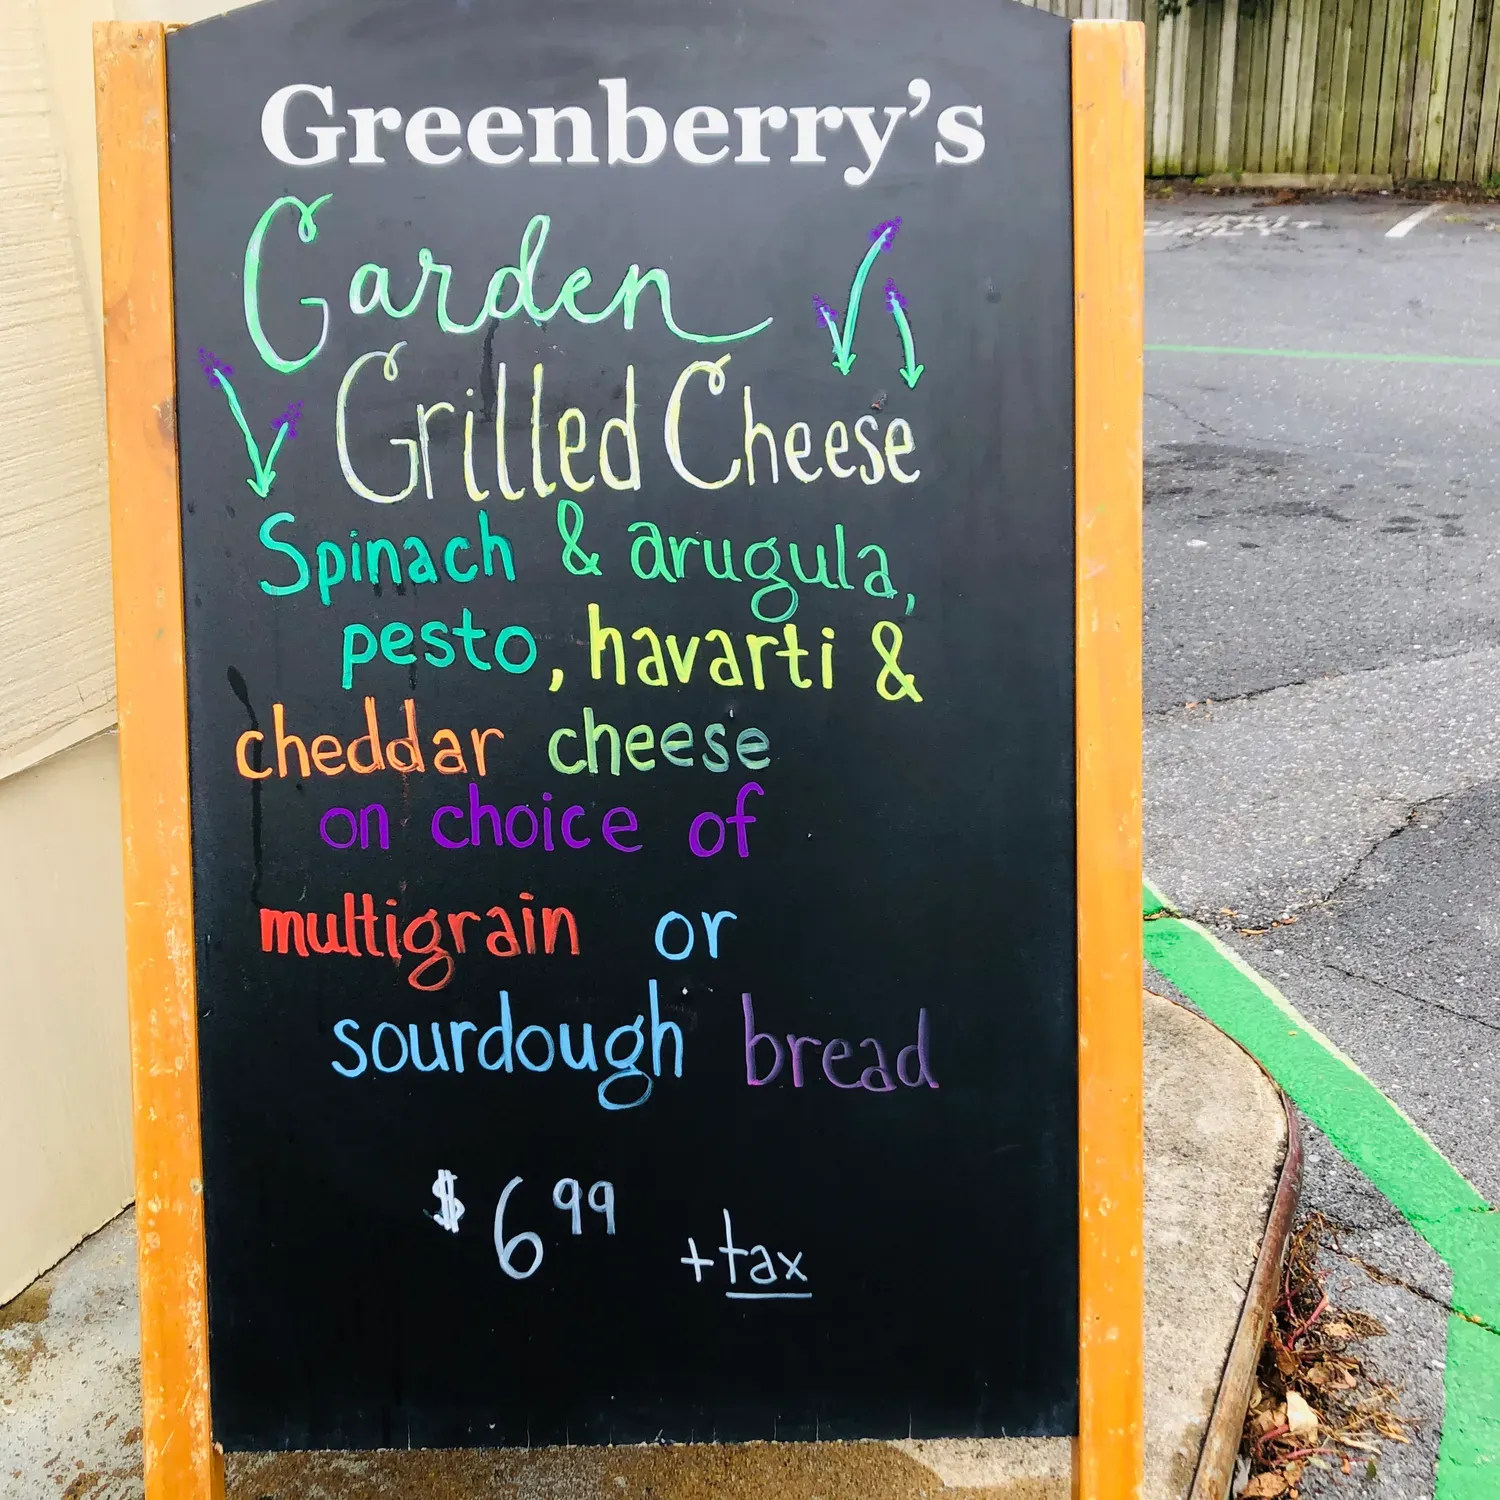 Greenberry's
Garden
Grilled Cheese
Spinach & arugula,
pesto, havarti &
cheddar cheese
on choice of
multigrain or
sourdough bread
$6.99 +tax